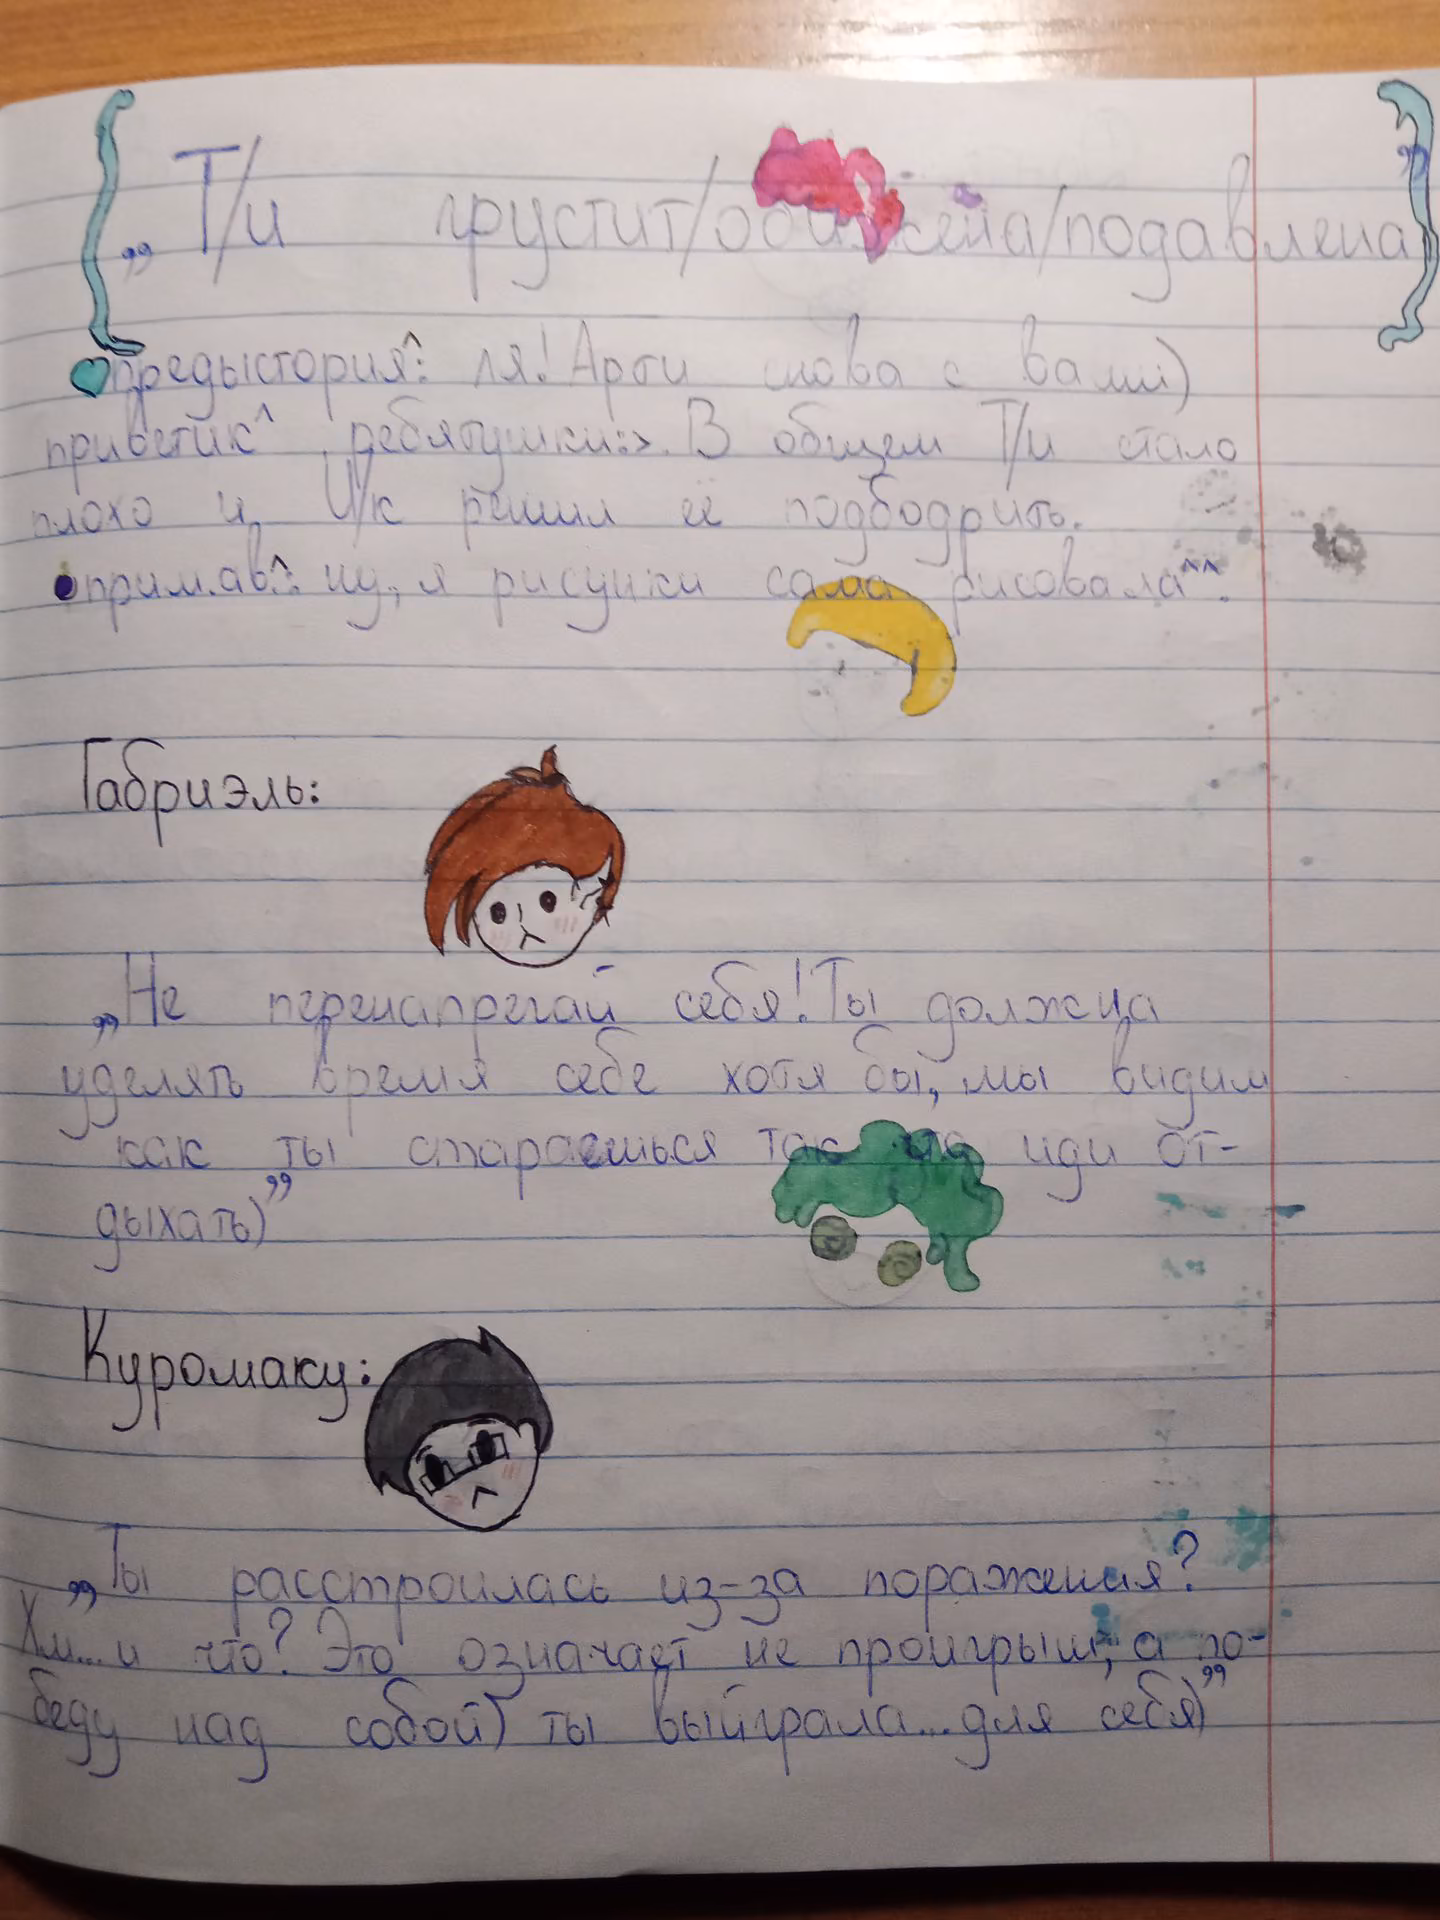 „Т/и грустит/обижена/подавлена”
предыстория^: ля! Арти снова с вами)
приветик^ ребятушки:>. В общем Т/и стало
плохо и И/к решил её подбодрить.
прим.ав^: ну, я рисунки сама рисовала^^.
Габриэль:
„Не перенапрегай себя! Ты должна
уделять время себе хотя бы, мы видим
как ты стараешься так что иди от-
дыхать)”
Куромаку:
„Ты расстроилась из-за поражения?
Хм... и что? Это означает не проигрыш, а по-
беду над собой) ты выйграла... для себя)”